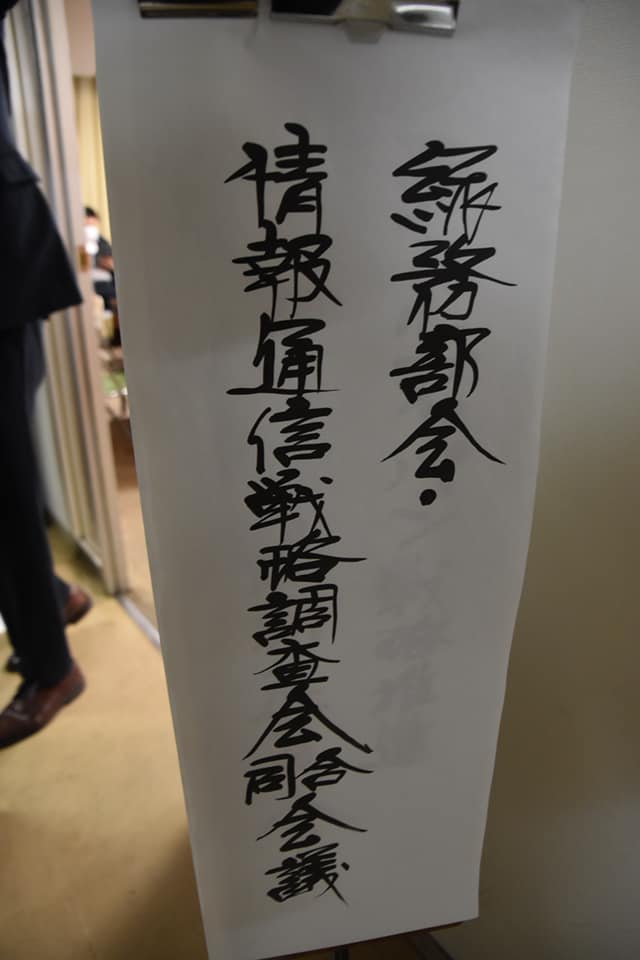 総務部会・
情報通信戦略調査会合同会議